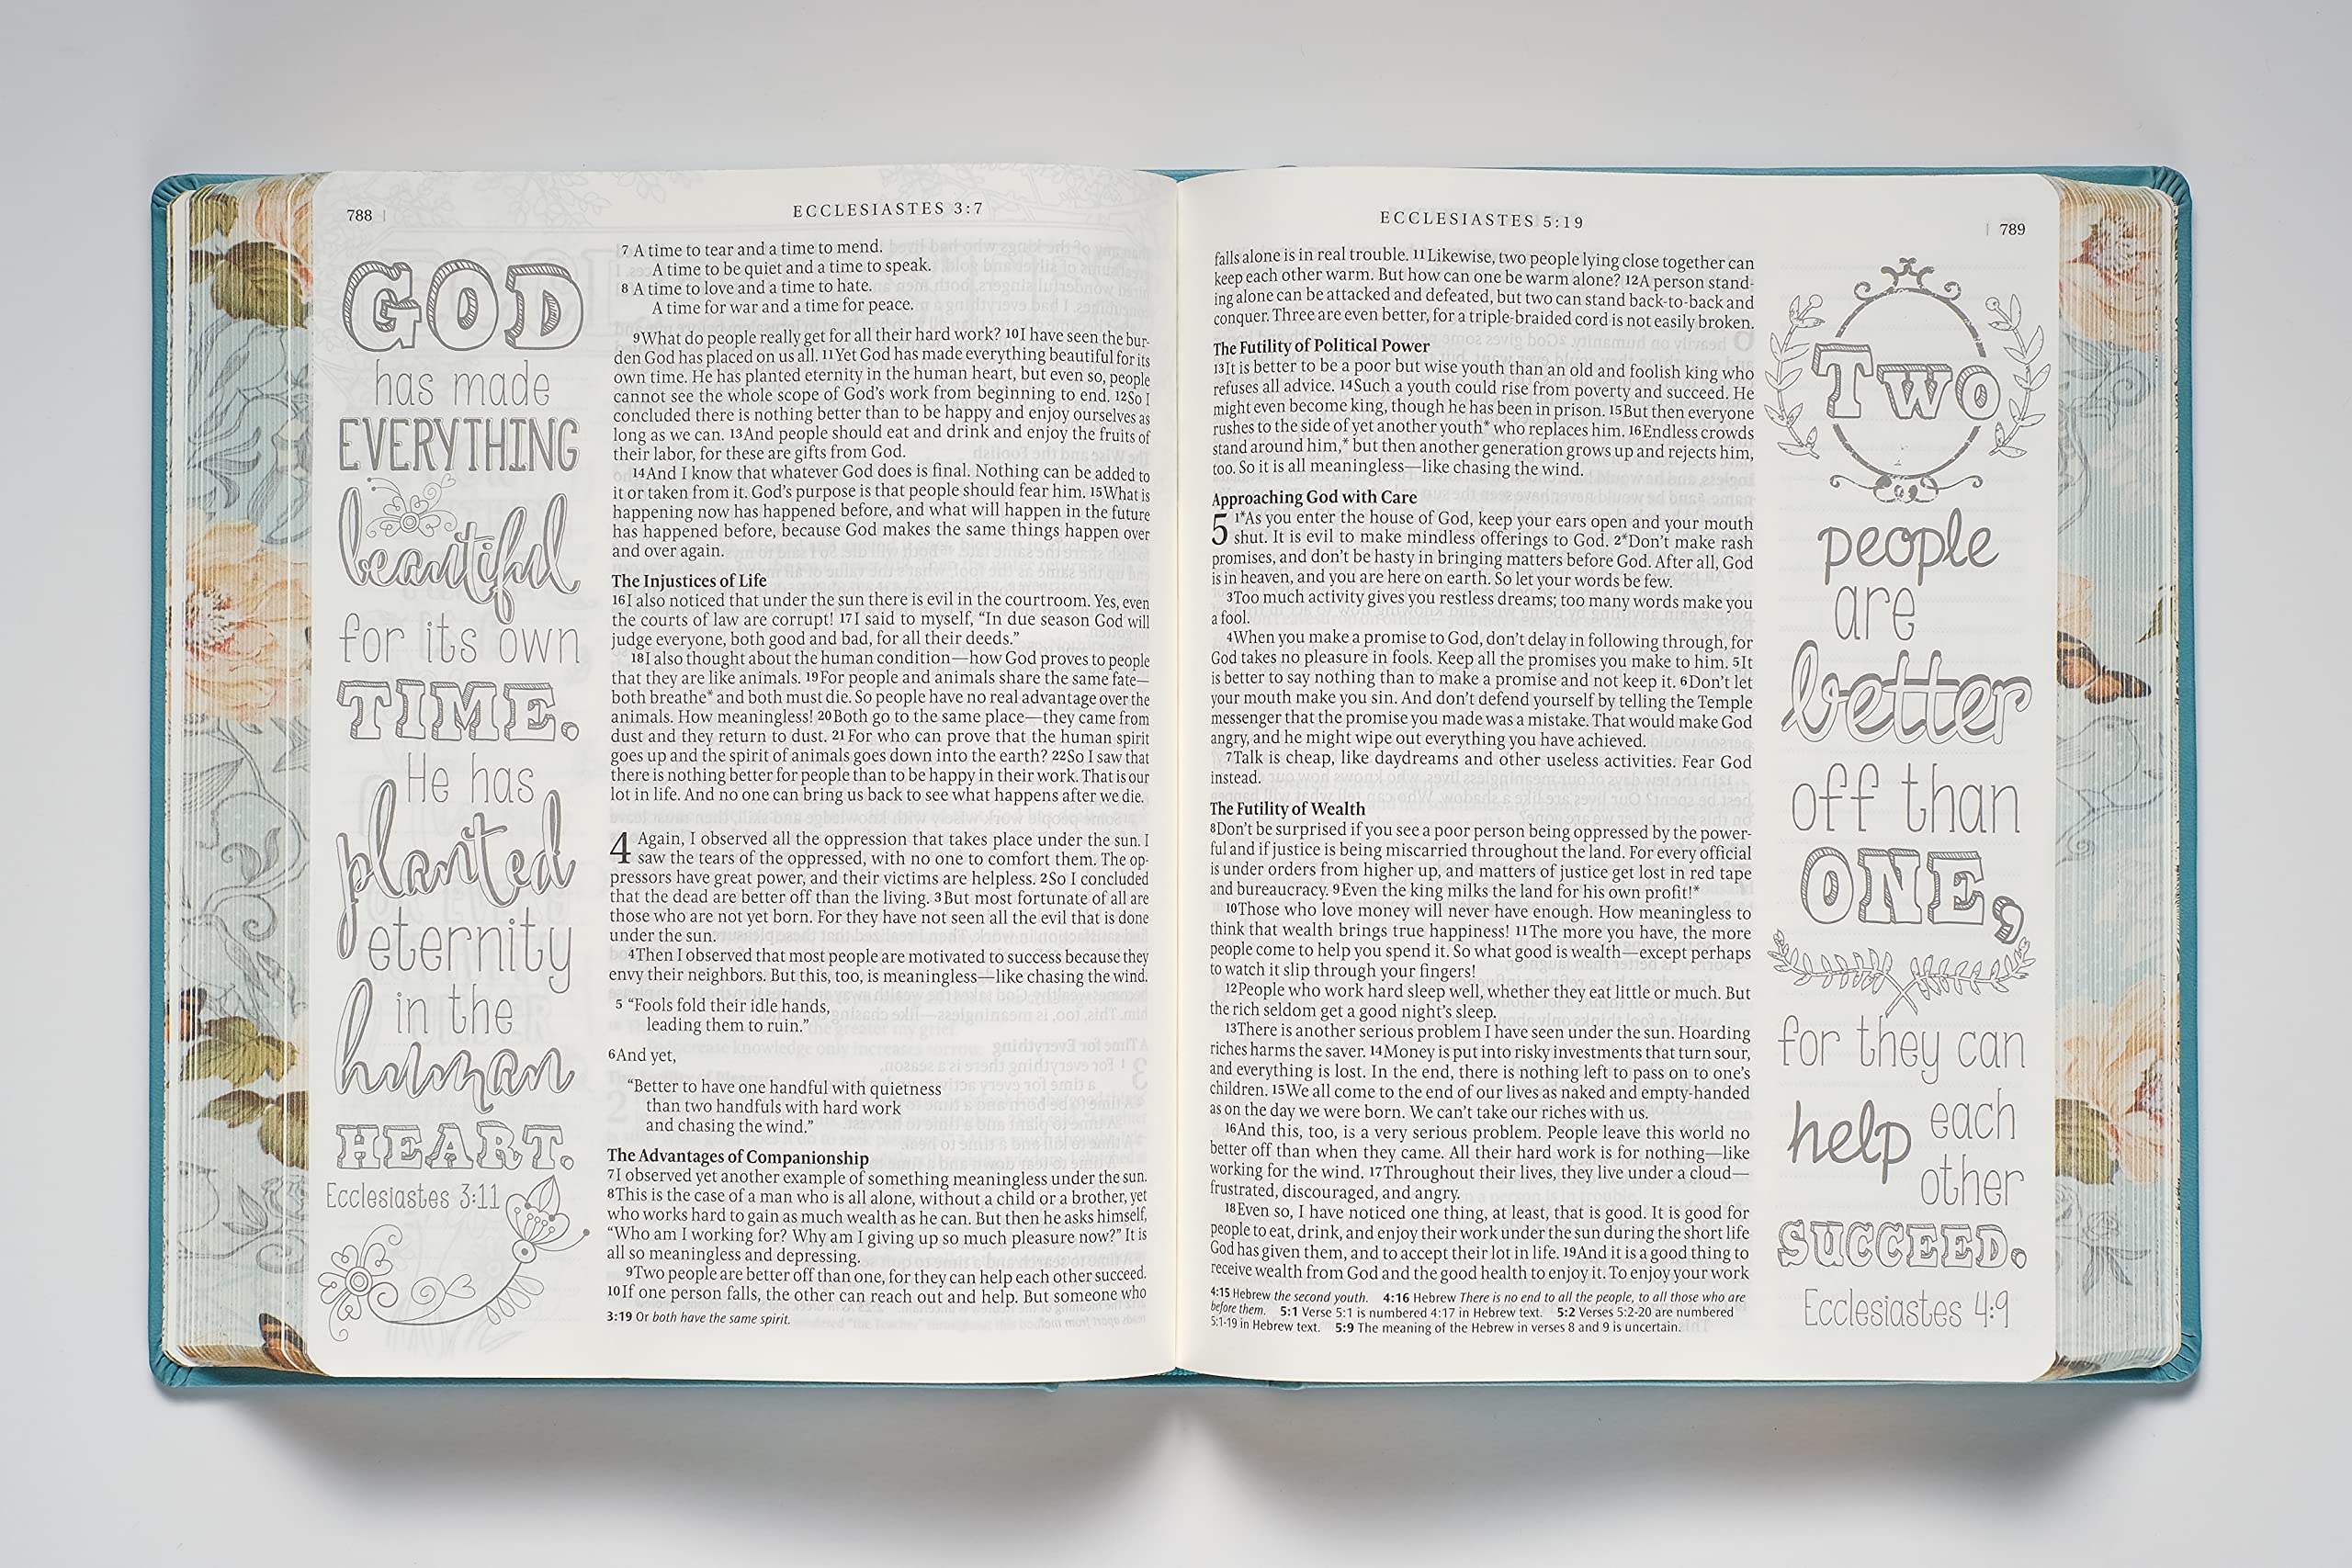 788
ECCLESIASTES 3:7
GOD
has made
EVERYTHING
beautiful
for its own
TIME.
He has
planted
eternity
in the
human
HEART.
Ecclesiastes 3:11
7 A time to tear and a time to mend.
A time to be quiet and a time to speak.
8 A time to love and a time to hate.
A time for war and a time for peace.
9What do people really get for all their hard work? 10I have seen the bur-
den God has placed on us all. 11Yet God has made everything beautiful for its
own time. He has planted eternity in the human heart, but even so, people
cannot see the whole scope of God’s work from beginning to end. 12So I
concluded there is nothing better than to be happy and enjoy ourselves as
long as we can. 13And people should eat and drink and enjoy the fruits of
their labor, for these are gifts from God.
14And I know that whatever God does is final. Nothing can be added to
it or taken from it. God’s purpose is that people should fear him. 15What is
happening now has happened before, and what will happen in the future
has happened before, because God makes the same things happen over
and over again.
The Injustices of Life
16I also noticed that under the sun there is evil in the courtroom. Yes, even
the courts of law are corrupt! 17I said to myself, “In due season God will
judge everyone, both good and bad, for all their deeds.”
18I also thought about the human condition—how God proves to people
that they are like animals. 19For people and animals share the same fate—
both breathe* and both must die. So people have no real advantage over the
animals. How meaningless! 20Both go to the same place—they came from
dust and they return to dust. 21For who can prove that the human spirit
goes up and the spirit of animals goes down into the earth? 22So I saw that
there is nothing better for people than to be happy in their work. That is our
lot in life. And no one can bring us back to see what happens after we die.
4 Again, I observed all the oppression that takes place under the sun. I
saw the tears of the oppressed, with no one to comfort them. The op-
pressors have great power, and their victims are helpless. 2So I concluded
that the dead are better off than the living. 3But most fortunate of all are
those who are not yet born. For they have not seen all the evil that is done
under the sun.
4Then I observed that most people are motivated to success because they
envy their neighbors. But this, too, is meaningless—like chasing the wind.
5 “Fools fold their idle hands,
leading them to ruin.”
6And yet,
“Better to have one handful with quietness
than two handfuls with hard work
and chasing the wind.”
The Advantages of Companionship
7I observed yet another example of something meaningless under the sun.
8This is the case of a man who is all alone, without a child or a brother, yet
who works hard to gain as much wealth as he can. But then he asks himself,
“Who am I working for? Why am I giving up so much pleasure now?” It is
all so meaningless and depressing.
9Two people are better off than one, for they can help each other succeed.
10If one person falls, the other can reach out and help. But someone who
3:19 Or both have the same spirit.
ECCLESIASTES 5:19
789
falls alone is in real trouble. 11Likewise, two people lying close together can
keep each other warm. But how can one be warm alone? 12A person stand-
ing alone can be attacked and defeated, but two can stand back-to-back and
conquer. Three are even better, for a triple-braided cord is not easily broken.
The Futility of Political Power
13It is better to be a poor but wise youth than an old and foolish king who
refuses all advice. 14Such a youth could rise from poverty and succeed. He
might even become king, though he has been in prison. 15But then everyone
rushes to the side of yet another youth* who replaces him. 16Endless crowds
stand around him,* but then another generation grows up and rejects him,
too. So it is all meaningless—like chasing the wind.
Approaching God with Care
5 1*As you enter the house of God, keep your ears open and your mouth
shut. It is evil to make mindless offerings to God. 2*Don’t make rash
promises, and don’t be hasty in bringing matters before God. After all, God
is in heaven, and you are here on earth. So let your words be few.
3Too much activity gives you restless dreams; too many words make you
a fool.
4When you make a promise to God, don’t delay in following through, for
God takes no pleasure in fools. Keep all the promises you make to him. 5It
is better to say nothing than to make a promise and not keep it. 6Don’t let
your mouth make you sin. And don’t defend yourself by telling the Temple
messenger that the promise you made was a mistake. That would make God
angry, and he might wipe out everything you have achieved.
7Talk is cheap, like daydreams and other useless activities. Fear God
instead.
The Futility of Wealth
8Don’t be surprised if you see a poor person being oppressed by the power-
ful and if justice is being miscarried throughout the land. For every official
is under orders from higher up, and matters of justice get lost in red tape
and bureaucracy. 9Even the king milks the land for his own profit!*
10Those who love money will never have enough. How meaningless to
think that wealth brings true happiness! 11The more you have, the more
people come to help you spend it. So what good is wealth—except perhaps
to watch it slip through your fingers!
12People who work hard sleep well, whether they eat little or much. But
the rich seldom get a good night’s sleep.
13There is another serious problem I have seen under the sun. Hoarding
riches harms the saver. 14Money is put into risky investments that turn sour,
and everything is lost. In the end, there is nothing left to pass on to one’s
children. 15We all come to the end of our lives as naked and empty-handed
as on the day we were born. We can’t take our riches with us.
16And this, too, is a very serious problem. People leave this world no
better off than when they came. All their hard work is for nothing—like
working for the wind. 17Throughout their lives, they live under a cloud—
frustrated, discouraged, and angry.
18Even so, I have noticed one thing, at least, that is good. It is good for
people to eat, drink, and enjoy their work under the sun during the short life
God has given them, and to accept their lot in life. 19And it is a good thing to
receive wealth from God and the good health to enjoy it. To enjoy your work
4:15 Hebrew the second youth. 4:16 Hebrew There is no end to all the people, to all those who are
before them. 5:1 Verse 5:1 is numbered 4:17 in Hebrew text. 5:2 Verses 5:2-20 are numbered
5:1-19 in Hebrew text. 5:9 The meaning of the Hebrew in verses 8 and 9 is uncertain.
Two
people
are
better
off than
ONE,
for they can
help each
other
SUCCEED.
Ecclesiastes 4:9